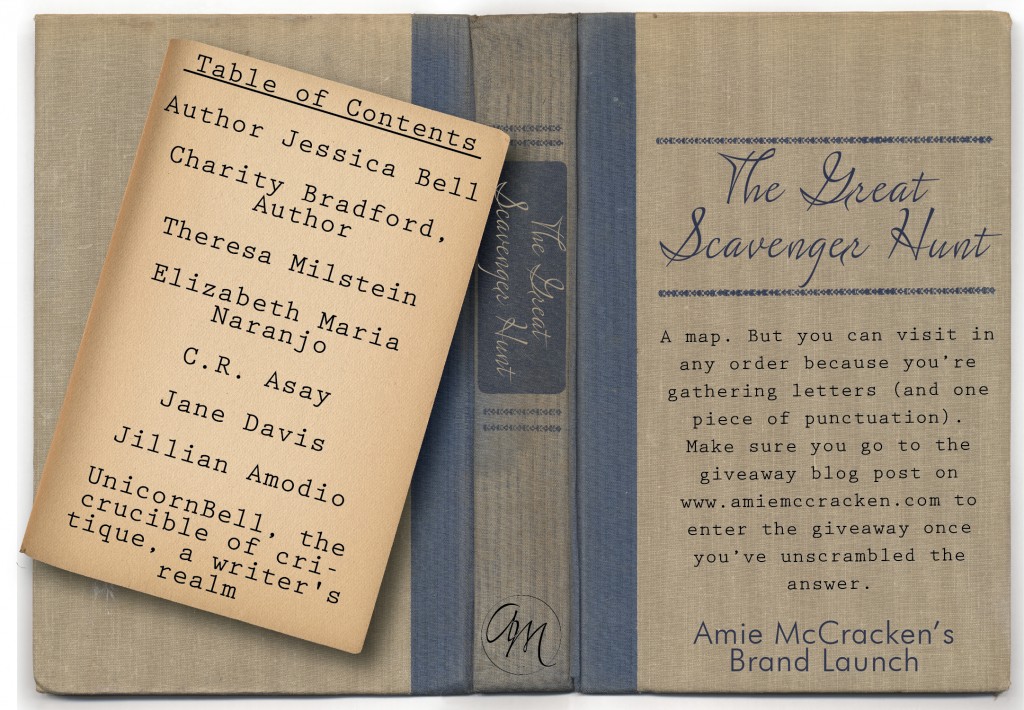 Table of Contents
Author Jessica Bell
Charity Bradford,
Author
Theresa Milstein
Elizabeth Maria
Naranjo
C.R. Asay
Jane Davis
Jillian Amodio
UnicornBell, the
crucible of cri-
tique, a writer's
realm
The Great
Scavenger Hunt
AM
The Great
Scavenger Hunt
A map. But you can visit in
any order because you’re
gathering letters (and one
piece of punctuation).
Make sure you go to the
giveaway blog post on
www.amiemccracken.com to
enter the giveaway once
you’ve unscrambled the
answer.
Amie McCracken’s
Brand Launch